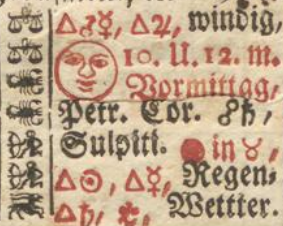 △♂☿, △♃, windig,
10. U. 12. m.
Vormittag,
Petr. Cor. ☍♄,
Sulpiti. ● in ♉,
△☉, △☿, Regen-
△♄, Wettter.